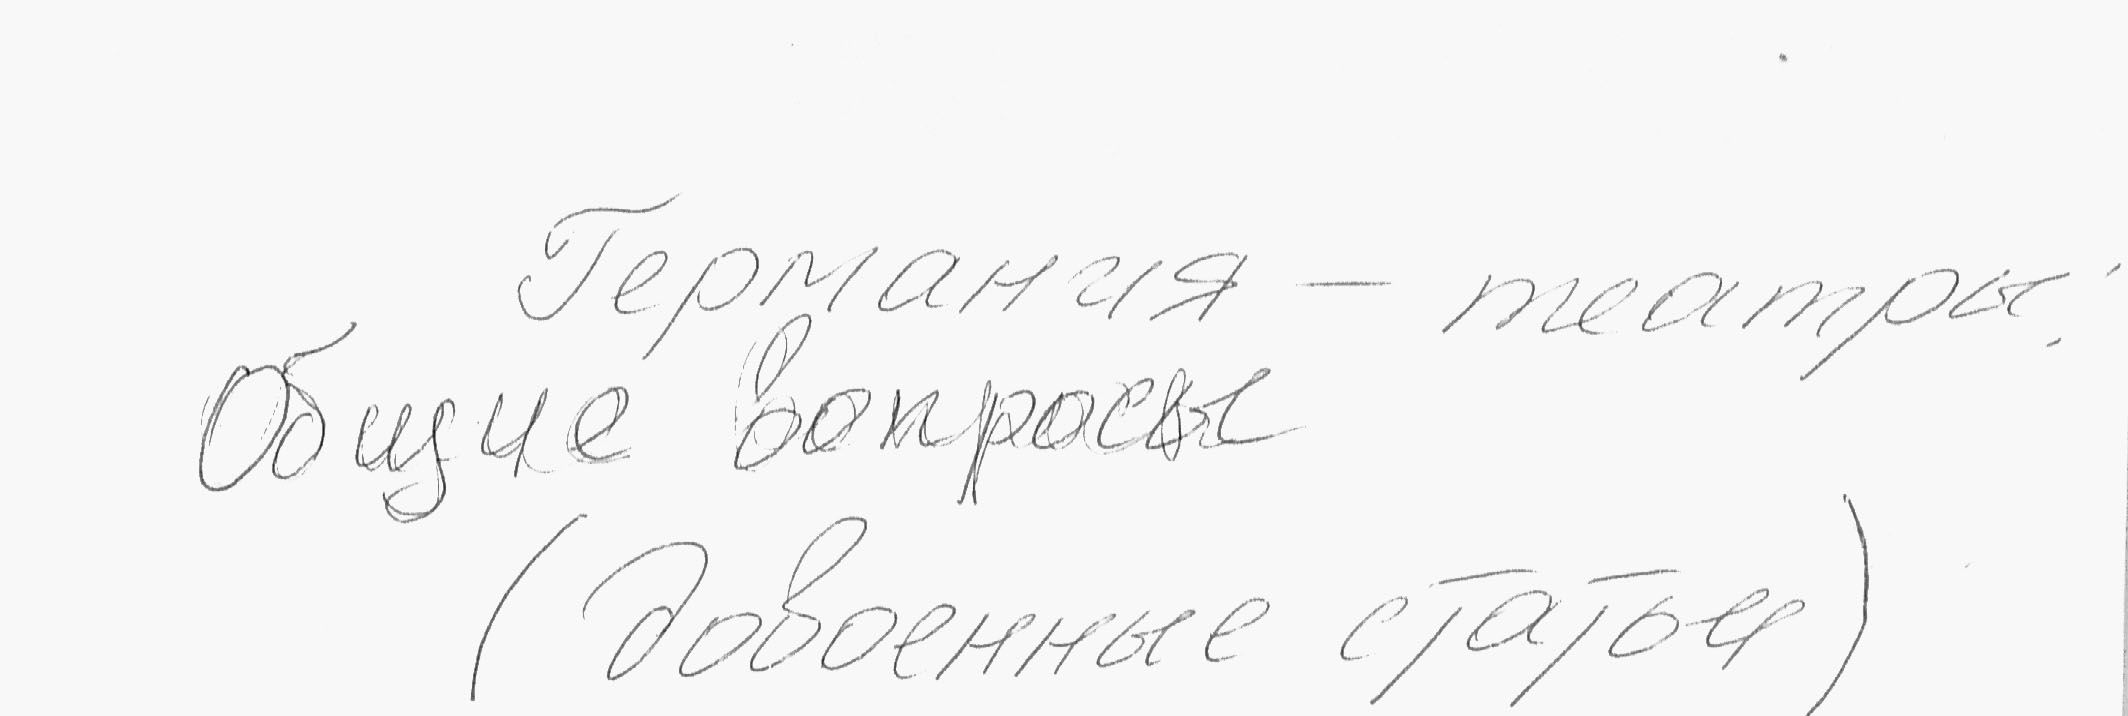 Германия — театры:
Общие вопросы
(довоенные статьи)